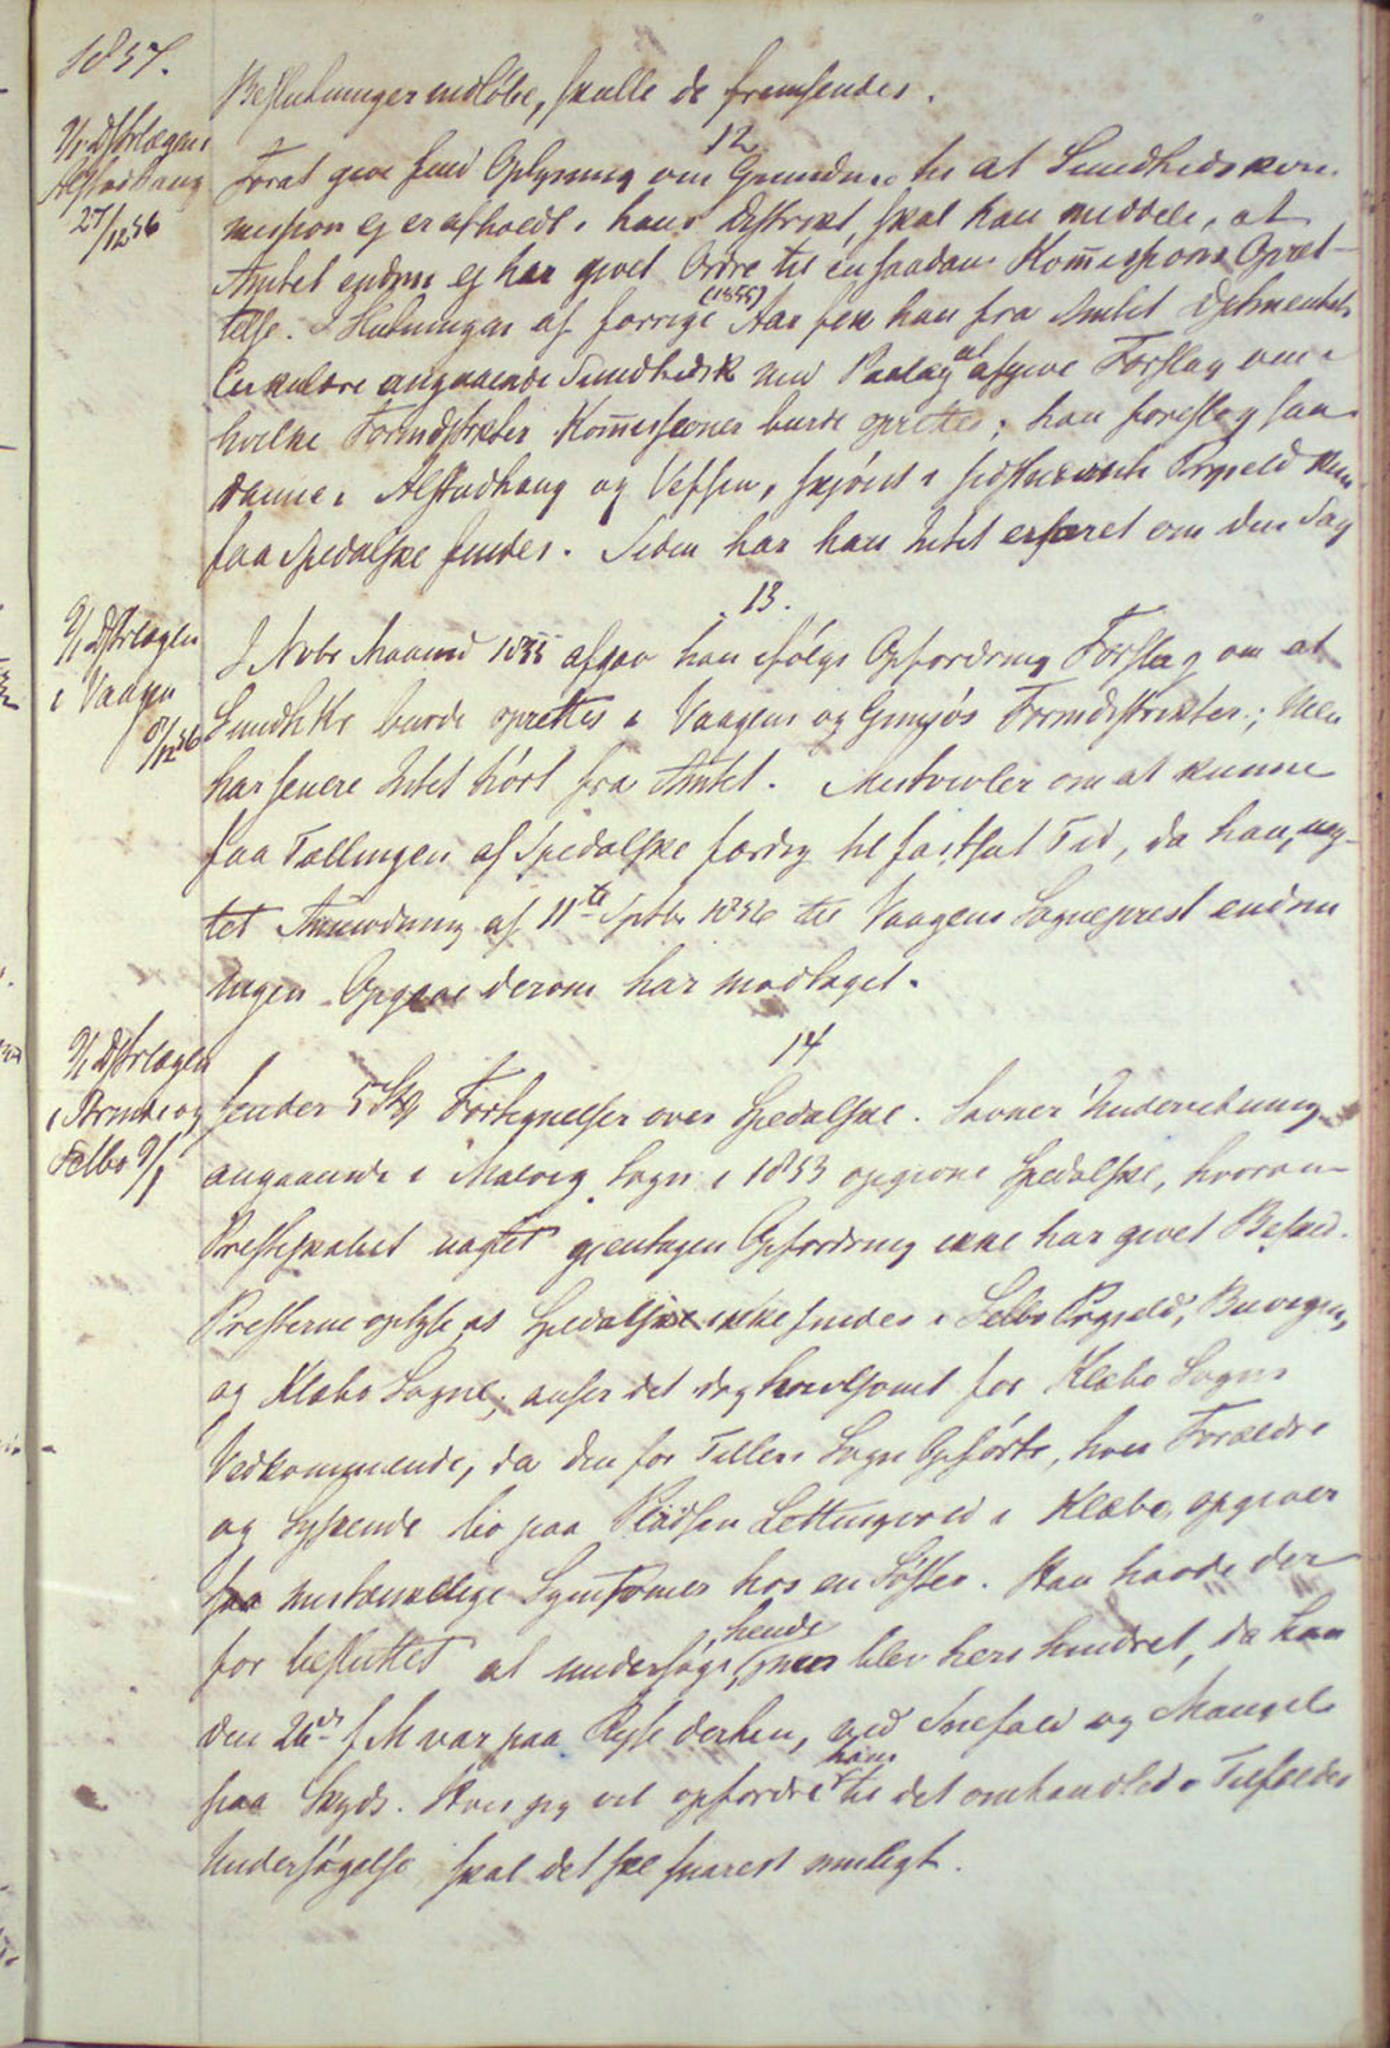 1857.
Beslutninger indløbe, skulle de fremsendes.
9/1 Dstrlægen i
Alstadhaug
27/12 56
12
Forat give fuld Oplysning om Grundene til at Sundhedskom-
mission ej er afholdt i hans Distrikt, skal han meddele, at
Amtet endnu ej har givet Ordre til en saadan Kommissions Opret-
telse. I Slutningen af forrige (1855) Aar fik han fra Amtet Dptmentets
Cirkulære angaaende Sundhedsk med Paalæg at afgive Forslag om i
hvilke Formdstrikter Kommissioner burde oprettes; han foreslog saa-
danne i Alstadhaug og Vefsen, skjönt i sidstnævnte Prgjeld kun
faa Spedalske findes. Siden har han Intet erfaret om den Sag
9/1 Dstrlægen
i Vaagen
8/12 56
13.
I Nvbr Maaned 1855 afgav han ifølge Opfordring Forslag om at
Sundhkk burde oprettes i Vaagens og Gimsös Formdistrikter; Men
har senere Intet hört fra Amtet. Mistvivler om at kunne
faa Tællingen af Spedalske færdig til fastsat Tid, da han, uag-
tet Anmodning af 11te Sptbr 1856 til Vaagens Sogneprest endnu
ingen Opgave derom har modtaget.
9/1 Dstrlægen
i Strinde og
Selbo 9/1
14
sender 5 Stk Fortegnelser over Spedalske. Savner Underretning
angaaende i Malvig Sogn i 1853 opgivne Spedalske, hvorom
Presteskabet uagtet gjentagen Opfordring ikke har givet Besked.
Presterne oplyse at Spedalske ikke findes i Selbo Prgjeld, Buvigen,
og Klæbo Sogne; anser det dog tvivlsomt for Klæbo Sogns
Vedkommende, da den for Tillers Sogn Opförte, hvis Forældre
og Syskende bo paa Pladsen Lettingvold i Klæbo, opgiver
faa mistænkelige Symtomer hos en Söster. Han havde der-
for besluttet at undersøge hende, men blev heri hindret, da han
den 26de f M var paa Rejse derhen, ved Snefald og Mangel
paa Skyds. Hvis jeg vil opfordre ham til det omhandlede Tilfældes
Undersøgelse, skal det ske snarest muligt.